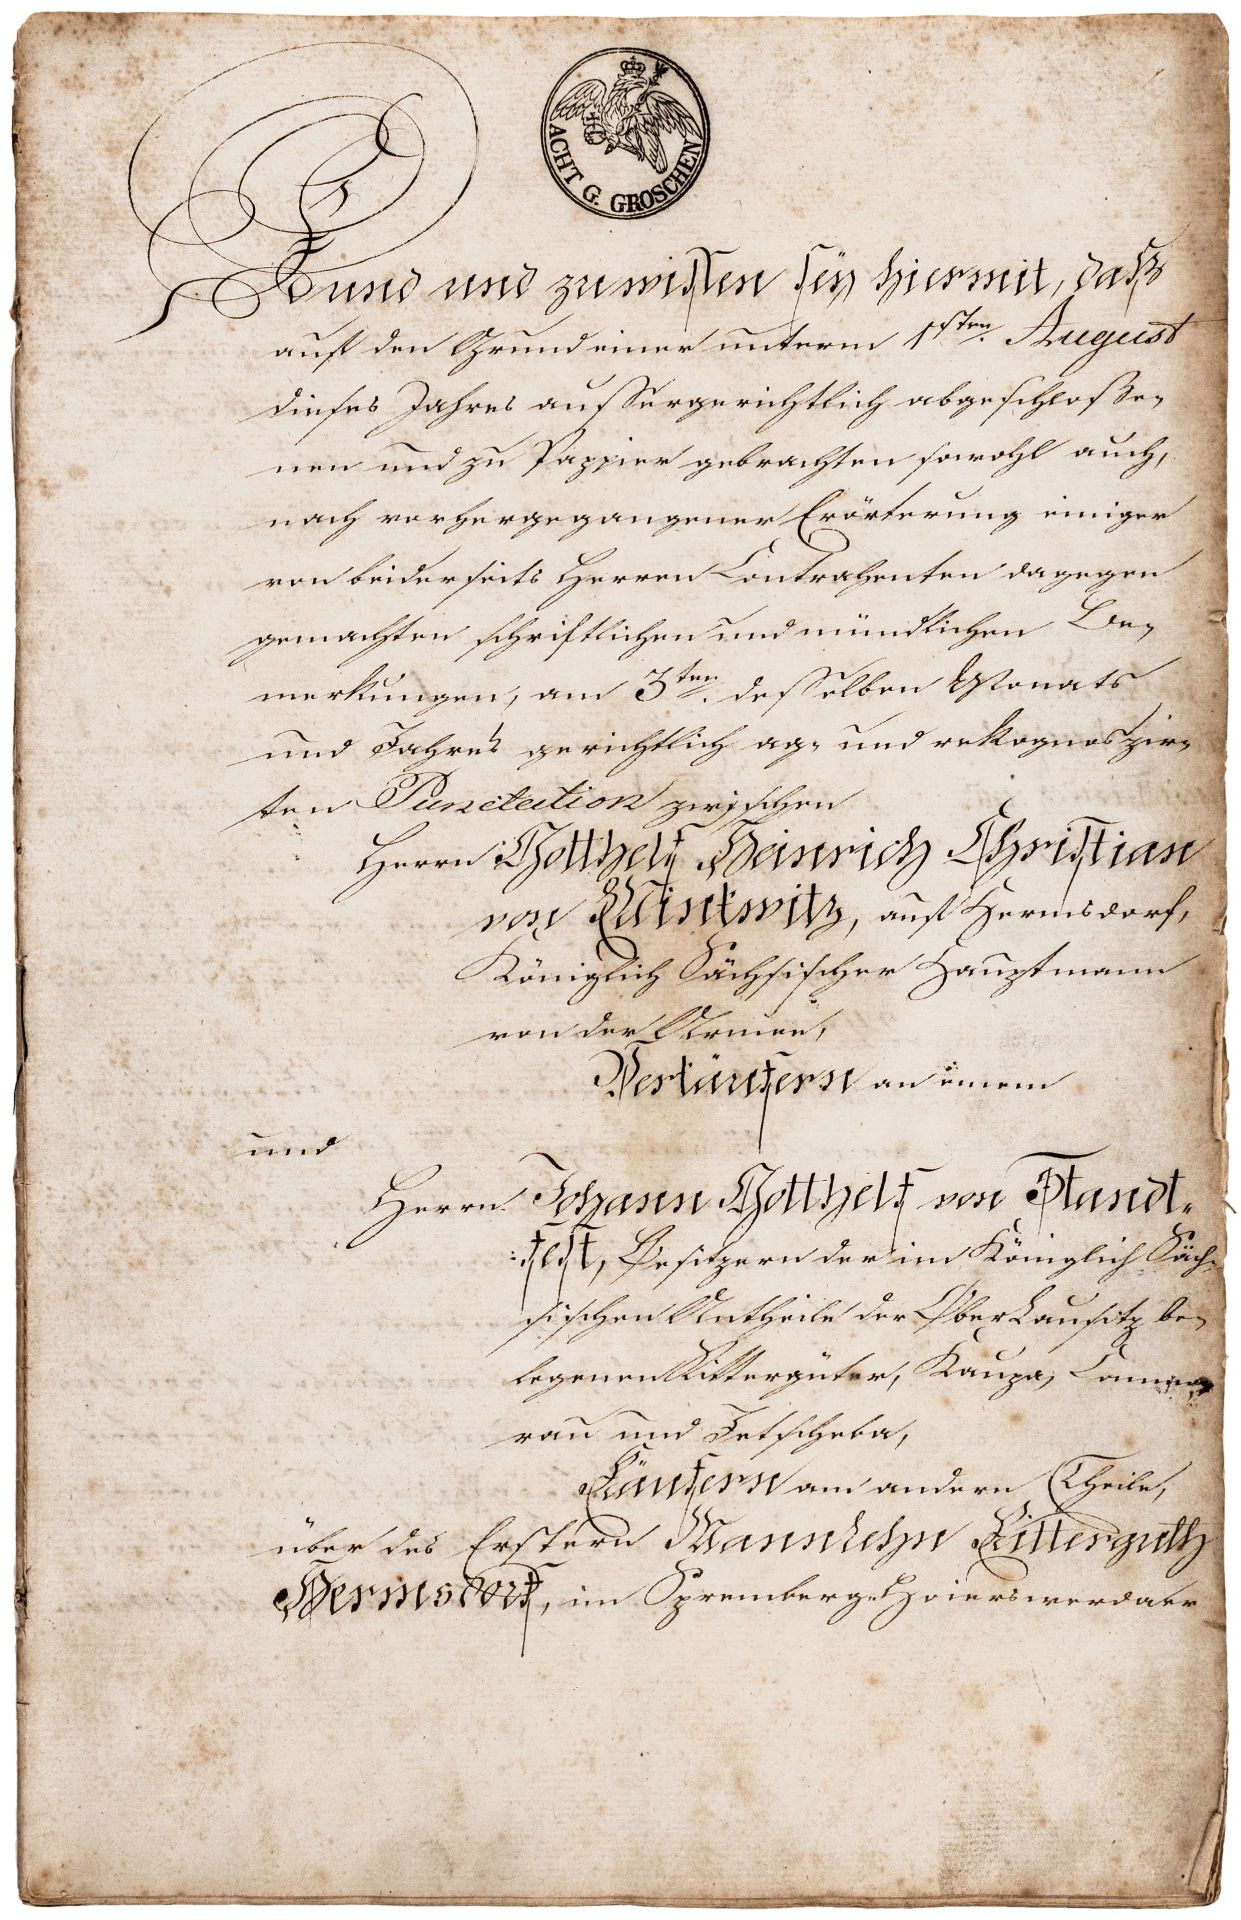 ACHT G. GROSCHEN
Kund und zu wissen sey hiermit, daß
auf den Grund einer unterm 1sten. August
dieses Jahres aussergerichtlich abgeschloße-
nen und zu Pappier gebrachten sowohl auch,
nach vorhergegangener Erörterung einiger
von beiderseits Herren Contrahenten dagegen
gemachten schriftlichen und mündlichen Be-
merkungen, am 3ten. desselben Monats
und Jahres gerichtlich ag- und rekognoszir-
ten Punctation zwischen
Herrn Gotthelf Heinrich Christian
von Minkwitz, auf Hermsdorf,
Königlich Sächsischer Hauptmann
von der Armee,
Verkäufern an einem
und
Herrn Johann Gotthelf von Standt-
fest, Besitzern der im Königlich Säch-
sischen Antheile der Ober Lausitz be-
legenen Rittergüter, Kauppa, Comme-
rau und Jetscheba,
Käufern am andern Theile,
über des Erstern Mannlehn Ritterguth
Hermsdorf, im Spremberg-Hoierswerdaer